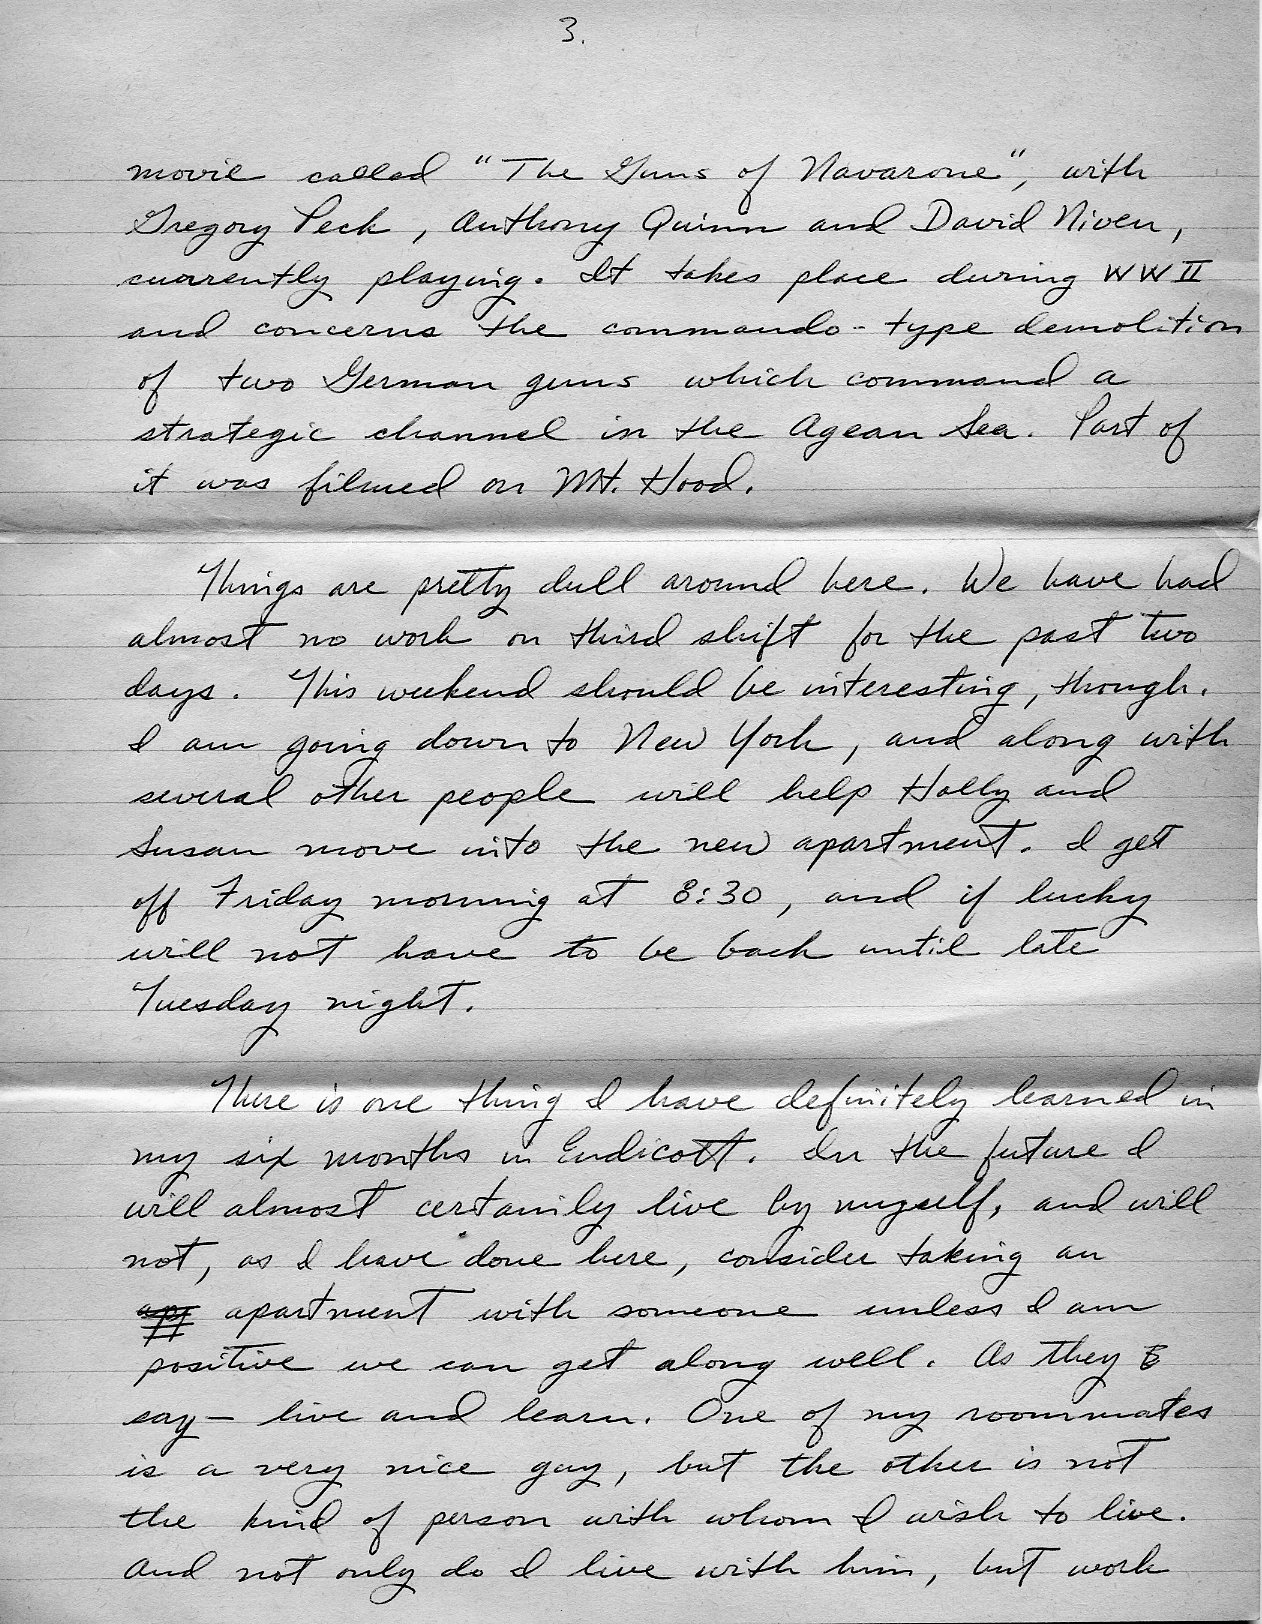 3.
movie called "The Guns of Navarone", with
Gregory Peck, Anthony Quinn and David Niven,
currently playing. It takes place during WWII
and concerns the commando-type demolition
of two German guns which command a
strategic channel in the Agean Sea. Part of
it was filmed on Mt. Hood.
Things are pretty dull around here. We have had
almost no work on third shift for the past two
days. This weekend should be interesting, though.
I am going down to New York, and along with
several other people will help Holly and
Susan move into the new apartment. I get
off Friday morning at 8:30, and if lucky
will not have to be back until late
Tuesday night.
There is one thing I have definitely learned in
my six months in Endicott. In the future I
will almost certainly live by myself, and will
not, as I have done here, consider taking an
apartment with someone unless I am
positive we can get along well. As they
say — live and learn. One of my roommates
is a very nice guy, but the other is not
the kind of person with whom I wish to live.
And not only do I live with him, but work